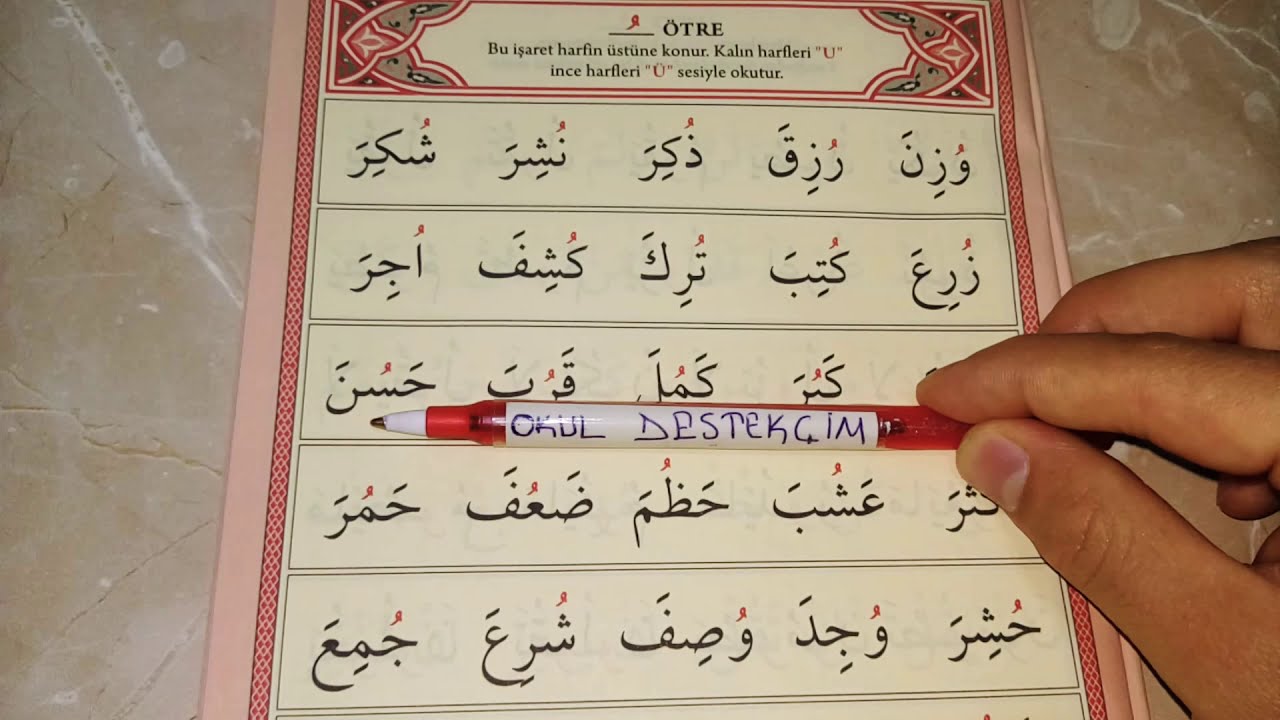 ــُـ ÖTRE
Bu işaret harfin üstüne konur. Kalın harfleri "U"
ince harfleri "Ü" sesiyle okutur.
وُزِنَ رُزِقَ ذُكِرَ نُشِرَ شُكِرَ
زُرِعَ كُتِبَ تُرِكَ كُشِفَ اُجِرَ
كَبُرَ كَمُلَ قَرُبَ حَسُنَ
OKUL DESTEKÇİM
كَثُرَ عَشُبَ حَظُمَ ضَعُفَ حَمُرَ
حُشِرَ وُجِدَ وُصِفَ شُرِعَ جُمِعَ